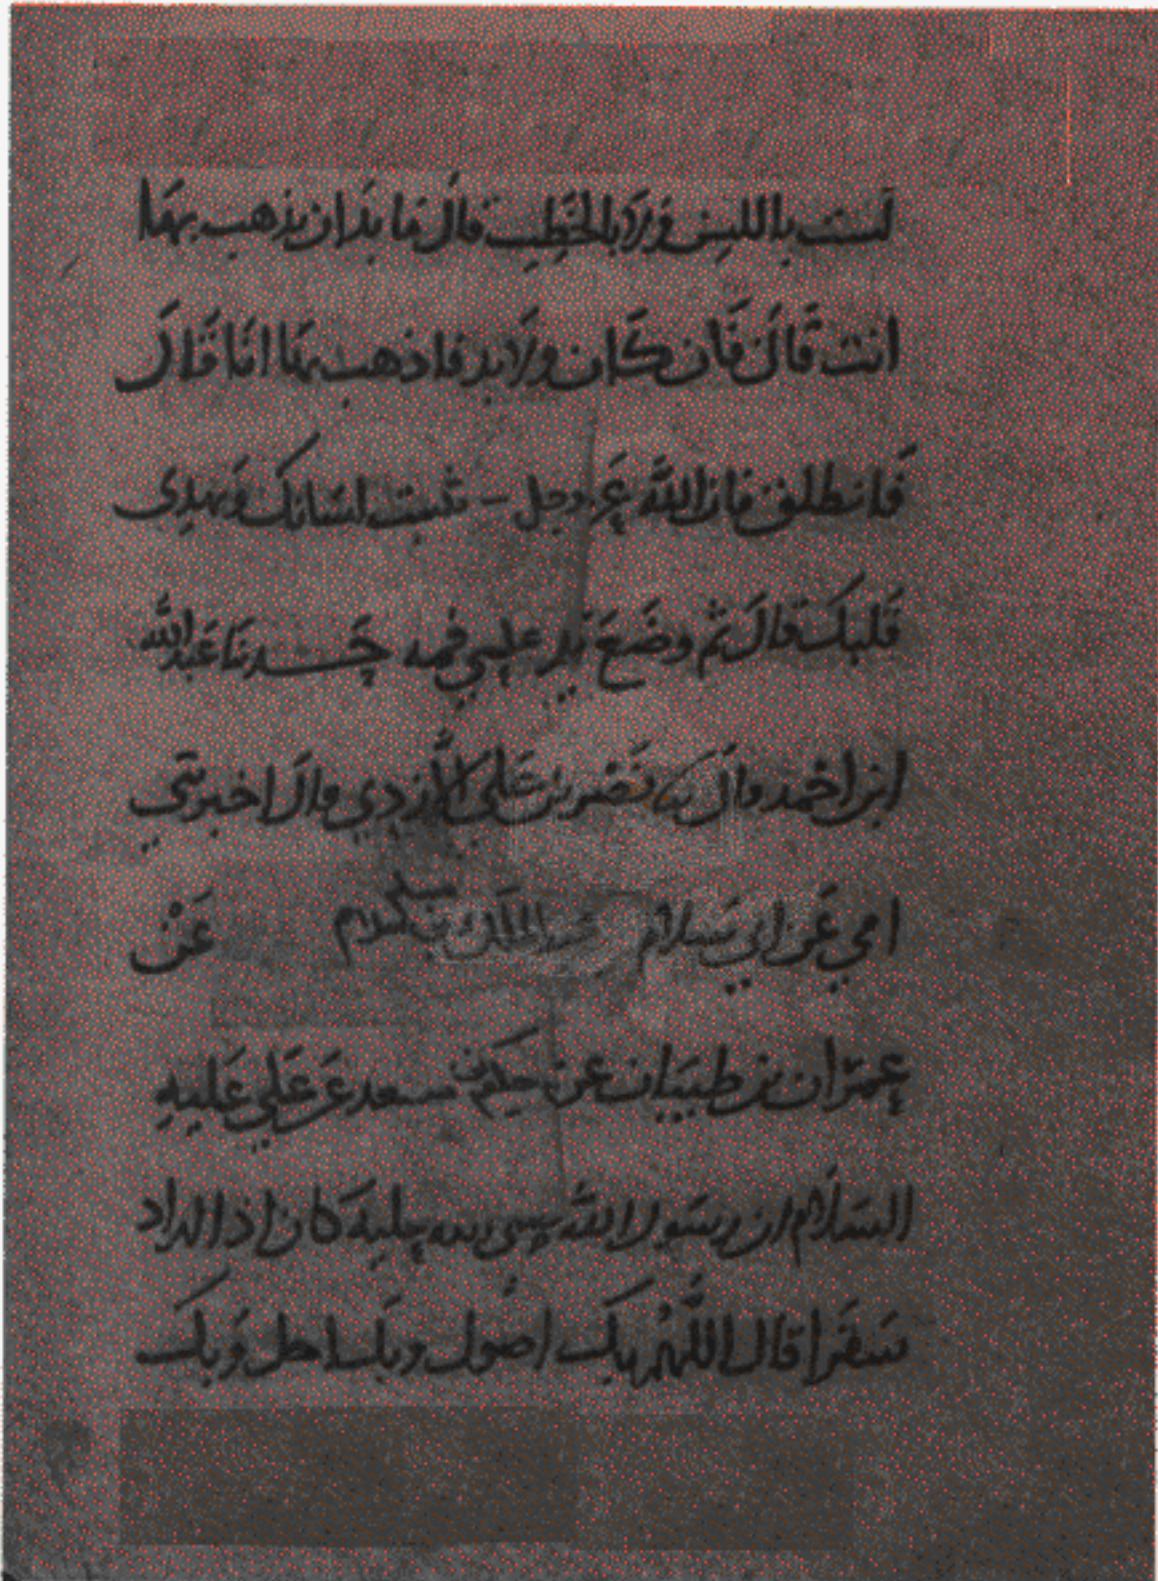 لست باللسن ولا بالخطيب قال ما بد ان يذهب بها
انت قال فان كان ولا بد فاذهب بها انا قال
فانطلق فان الله عز وجل يثبت لسانك ويهدي
قلبك قال ثم وضع يده على فمه حدثنا عبد الله
ابن احمد قال نصر بن علي الأزدي قال اخبرني
ابي عن ابي سلام عبد الملك بن سلام عن
عمران بن ظبيان عن حكيم بن سعد عن علي عليه
السلام ان رسول الله صلى الله عليه كان اذا اراد
سفرا قال اللهم بك اصول وبك احل وبك